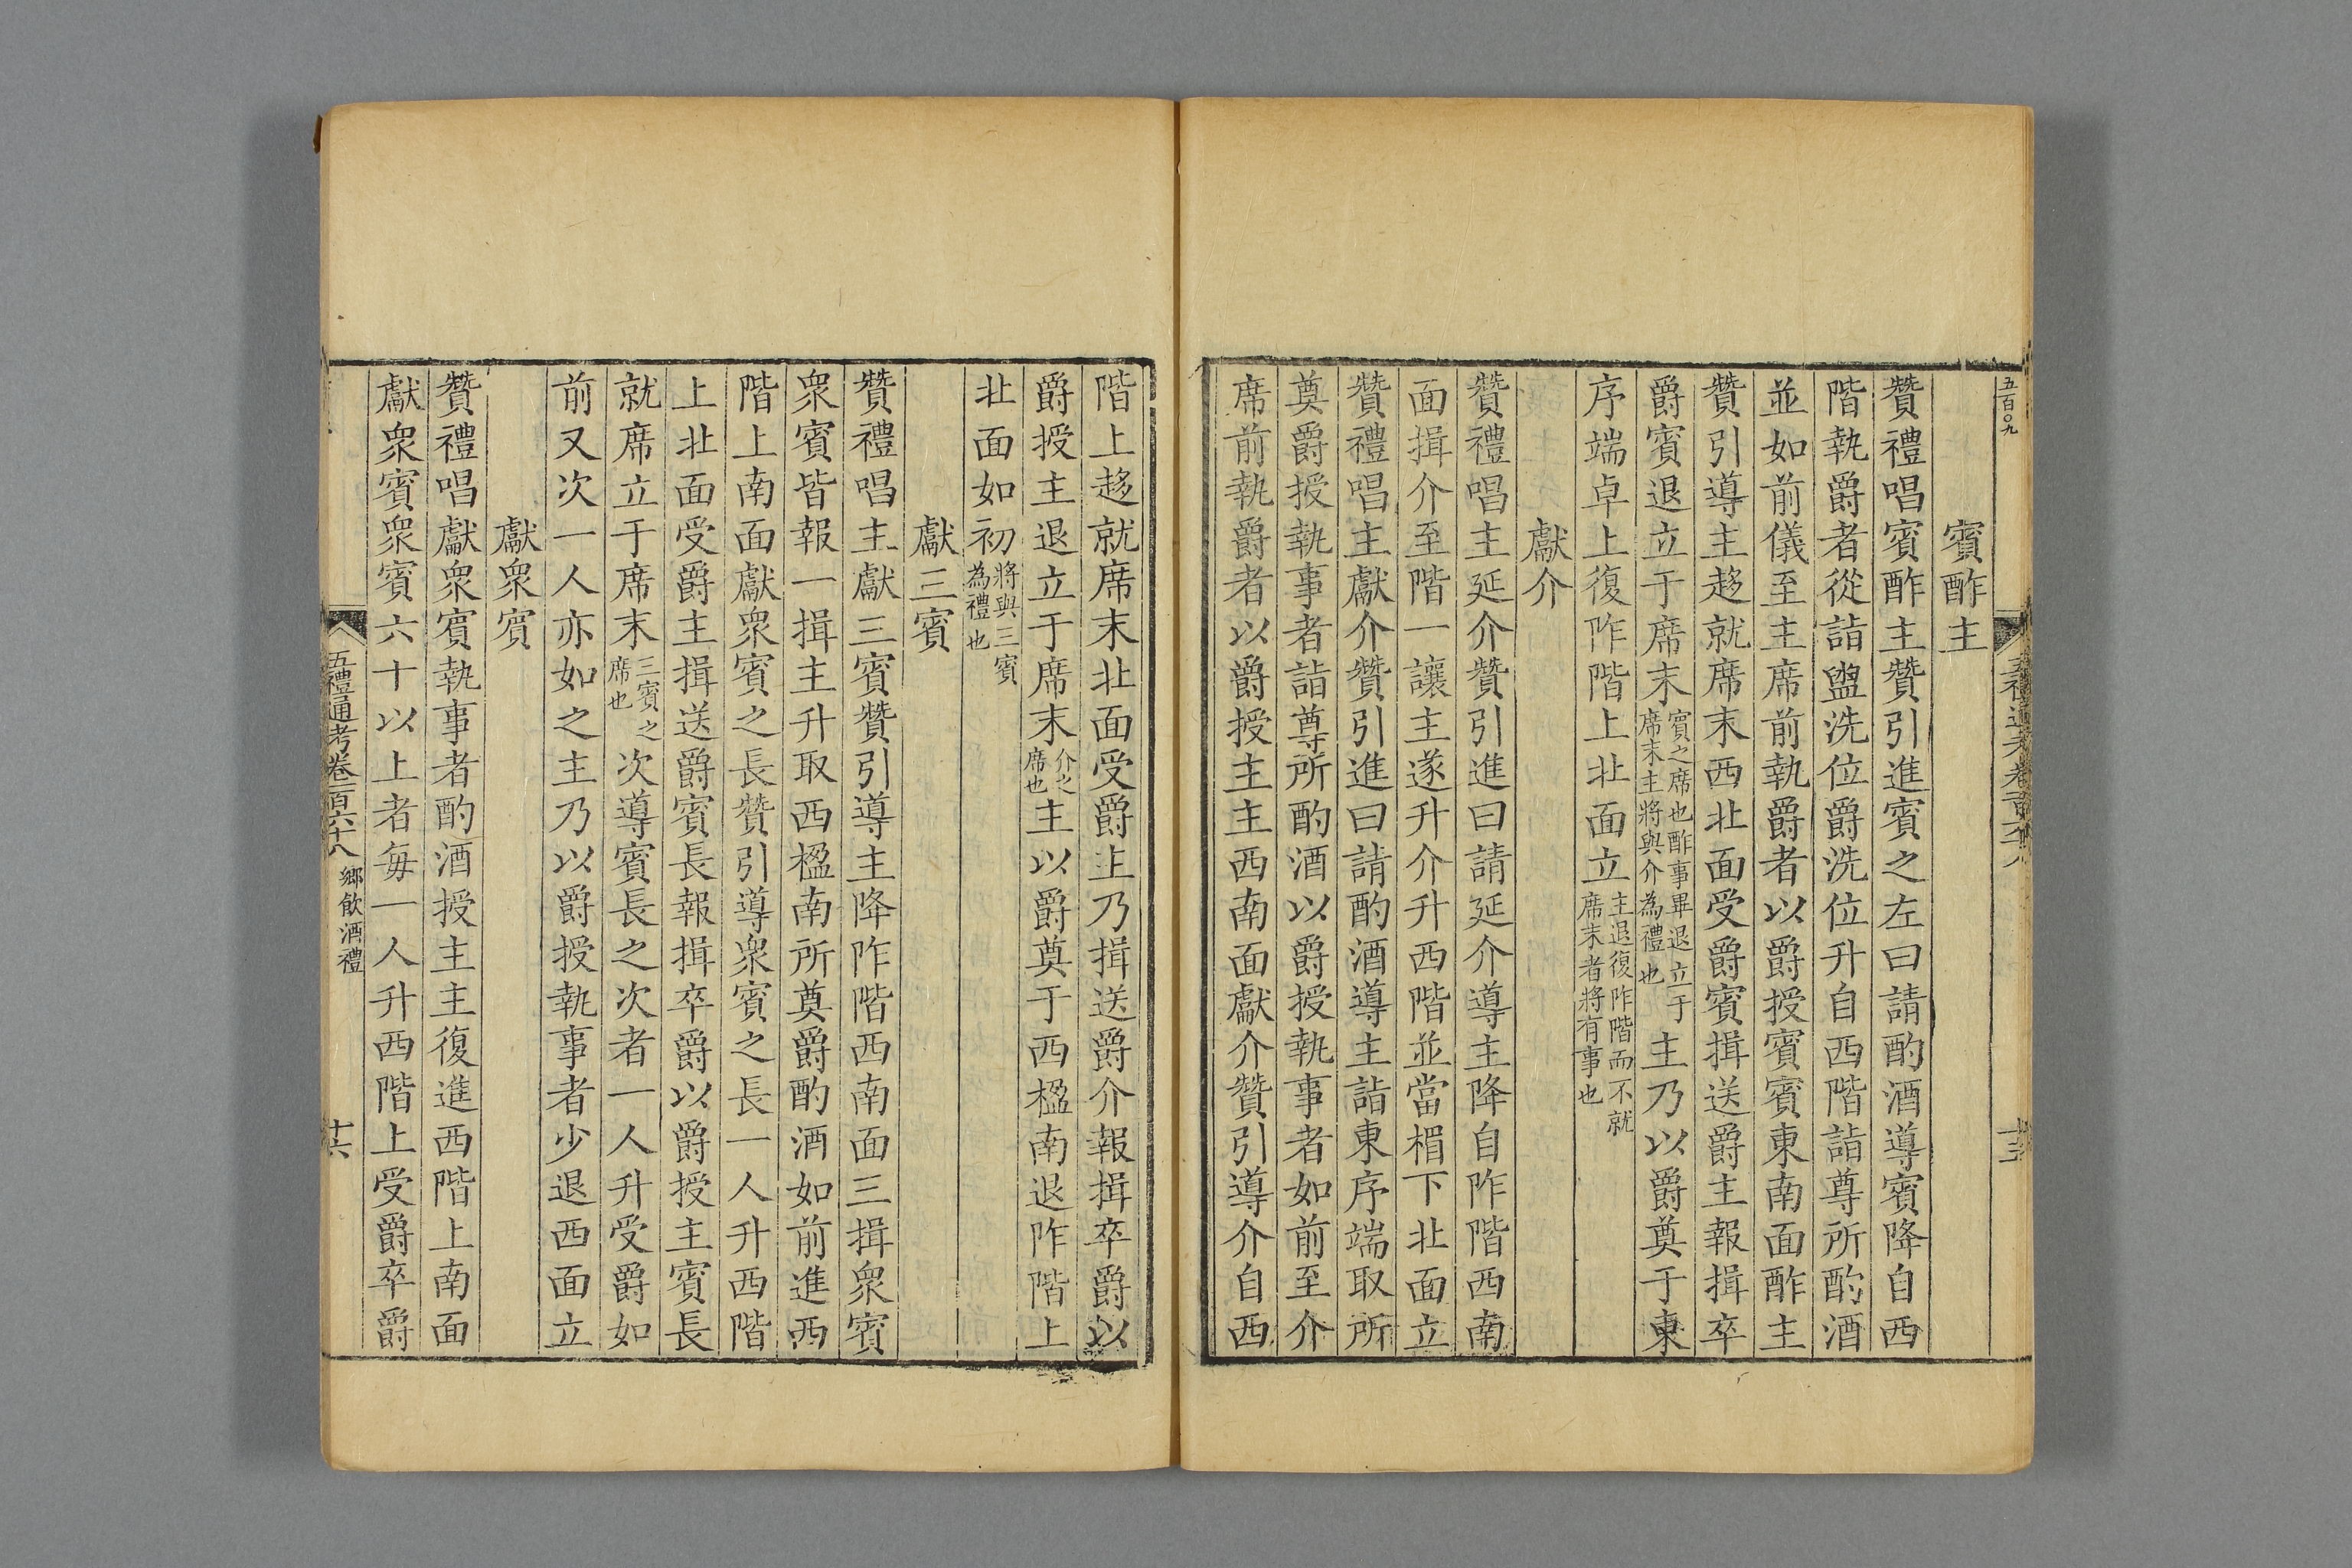 五百〇九
賓酢主
贊禮唱賓酢主贊引進賓之左曰請酌酒導賓降自西
階執爵者從詣盥洗位爵洗位升自西階詣尊所酌酒
並如前儀至主席前執爵者以爵授賓賓東南面酢主
贊引導主趍就席末西北面受爵賓揖送爵主報揖卒
爵賓退立于席末賓之席也酢事畢退立于席末主將與介為禮也主乃以爵奠于東
序端卓上復阼階上北面立主退復阼階而不就席末者將有事也
獻介
贊禮唱主延介贊引進曰請延介導主降自阼階西南
面揖介至階一讓主遂升介升西階並當楣下北面立
贊禮唱主獻介贊引進曰請酌酒導主詣東序端取所
奠爵授執事者詣尊所酌酒以爵授執事者如前至介
席前執爵者以爵授主主西南面獻介贊引導介自西
階上趍就席末北面受爵主乃揖送爵介報揖卒爵以
爵授主退立于席末介之席也主以爵奠于西楹南退阼階上
北面如初將與三賓為禮也
獻三賓
贊禮唱主獻三賓贊引導主降阼階西南面三揖衆賓
衆賓皆報一揖主升取西楹南所奠爵酌酒如前進西
階上南面獻衆賓之長贊引導衆賓之長一人升西階
上北面受爵主揖送爵賓長報揖卒爵以爵授主賓長
就席立于席末三賓之席也次導賓長之次者一人升受爵如
前又次一人亦如之主乃以爵授執事者少退西面立
獻衆賓
贊禮唱獻衆賓執事者酌酒授主主復進西階上南面
獻衆賓衆賓六十以上者每一人升西階上受爵卒爵
五禮通考卷一百六十八 鄉飲酒禮 十六